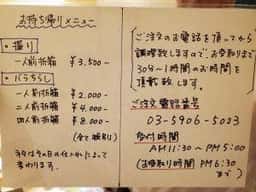 お持ち帰りメニュー
・握り
一人前折箱 ¥3,500-
・バラちらし
一人前折箱 ¥2,000-
二人前折箱 ¥4,000-
四人前折箱 ¥8,000-
(全て税別)
ネタはその日の仕入れによって
変わります。
ご注文のお電話を頂いてから
調理致しますので、お受取りまで
30分〜1時間のお時間を
頂戴致します。
ご注文電話番号
03-5906-5003
受付時間
AM11:30〜PM5:00
(お受取り時間 PM6:30
まで)